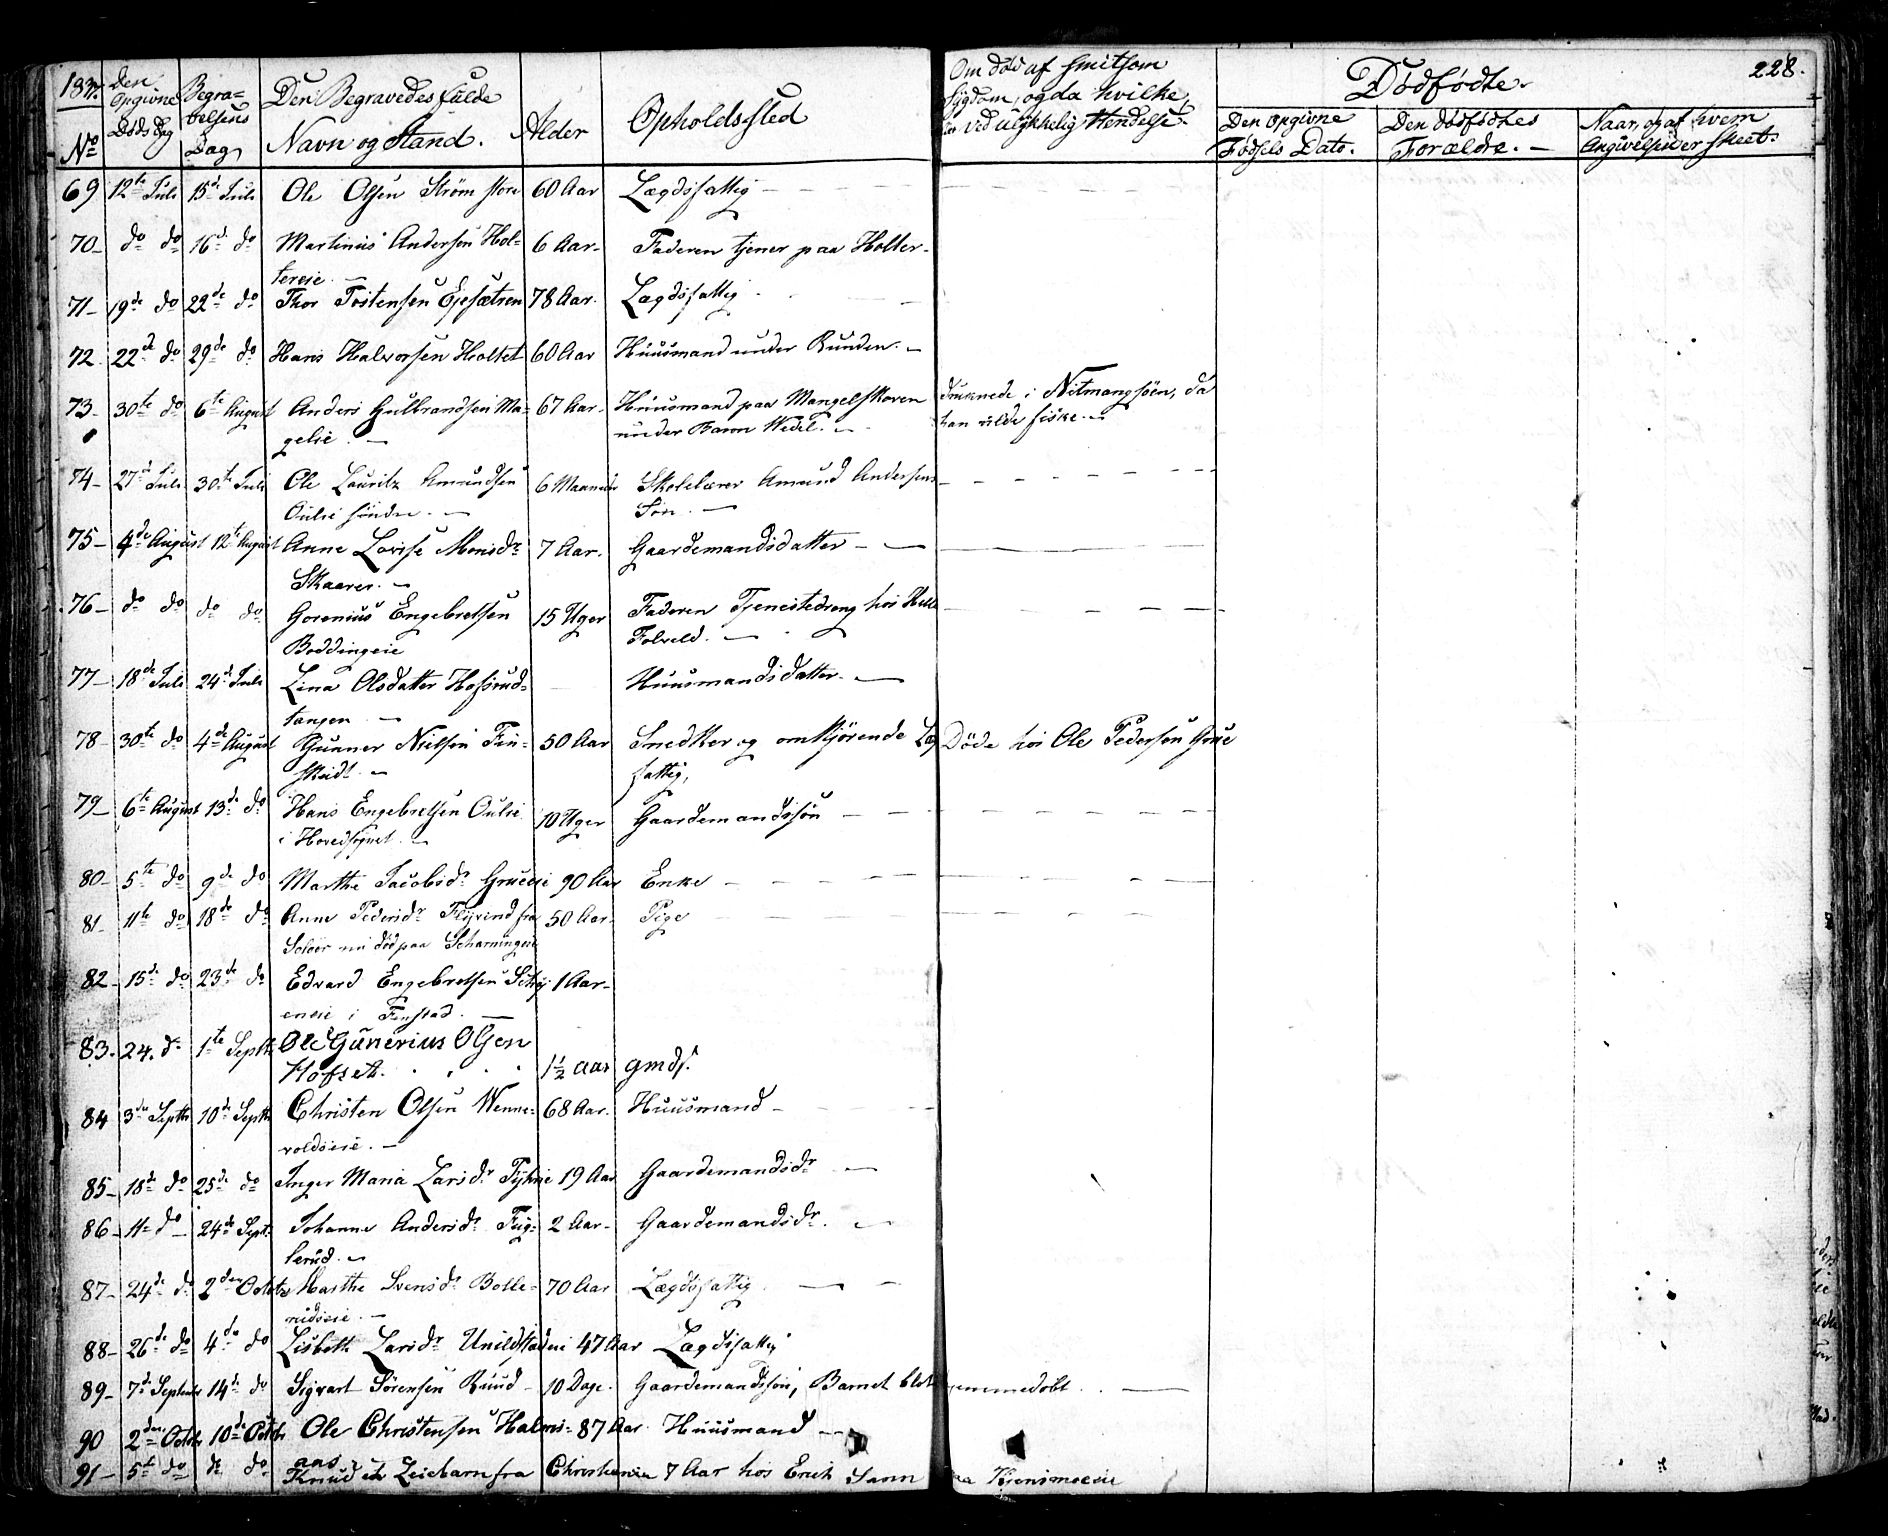 1837. Den Opgivne Dødsdag Begravelsens Dag Den Begravedes fulde Alder Opholdssted Om død af smitsom Sygdom, og da hvilke, Dødfødte. 228.
No Navn og Stand. ved ulykkelig Hendelse. Den opgivne Fødsels Dato. Den dødfødtes Forældre. — Naar, og af hvem Angivelsen er skeet.
69 12te Juli 15de Juli Ole Olsen Strøm store 60 Aar Lægdsfattig —
70 — do do 16de do Martinus Andersen Hol= 6 Aar — Faderen tjener paa Holter —
tereie
71 — 19de do 22de do Thor Tostensen Ejesætren 78 Aar. Lægdsfattig
72 22de do 29de do Hans Halvorsen Holtet 60 Aar Huusmand under Runden. —
73 30te do 6te August Anders Gulbrandsen Ma= 67 Aar. Huusmand paa Mangelskoven druknede i Nitmangsøen, da
gelie. — under Baron Wedel. — han vilde fiske. —
74 — 27de Juli 30te Juli Ole Lauritz Amundsen 6 Maaneder Skolelærer Amund Andersens
Oulie søndre. — Søn. —
75 — 4de August 12te August Anne Lovise Monsdr 7 Aar. Gaardemandsdatter —
Skaarer. —
76 — do do do do Gorenius Engebretsen 15 Uger Faderen Tjenestedreng hos
Boddingeie Folveld. —
77 — 18de Juli 24de Juli Lina Olsdatter Hofsrud= Huusmandsdatter. —
tangen —
78 — 30te do 4de August Gunner Nielsen Fin= 50 Aar Snedker og omkjørende Læg Døde hos Ole Pedersen Grue
skeidt — fattig,
79 — 6te August 13de do Hans Engebretsen Oulie 10 Uger Gaardemandssøn
i Hovedsognet. —
80 — 5te do 9de do Marthe Jacobsdr Grueeie 90 Aar Enke
81 — 11te do 18de do Anne Pedersdr Flyvind fra 50 Aar. Pige
Soløer nu død paa
82 — 15de do 23de do Edvard Engebretsen 1 Aar —
eneie i Finstad. —
83. 24. do 1te Septbr Ole Gunerius Olsen
Hofset. 1½ aar gmds.
84 3de Septbr 10de Septbr Christen Olsen Wenne= 68 Aar. Huusmand —
voldseie. —
85 — 18de do 25de do Inger Maria Larsdr 19 Aar Gaardemandsdr —
86 — 11te do 24de Septr Johanne Andersdr Fug= 2 Aar — Gaardemandsdr. —
lerud. —
87 — 24de do 2den Octobr Marthe Svensdr Bolle= 70 Aar Lægdsfattig. —
rudseie. —
88 — 26de do 4de do Lisbeth Larsdr 47 Aar Lægdsfattig
89 — 7de September 14de do Sigvart Sørensen Ruud — 10 Dage. Gaardemandssøn, Barnet blot hjemmedøbt. —
90 2den Octbr 10de Octbr Ole Christensen Halms= 87 Aar. Huusmand —
aas
91 — 5te do do do Knud et Leiebarn fra Christiania 7 Aar hos Erich Sann paa Kjensmoeeie